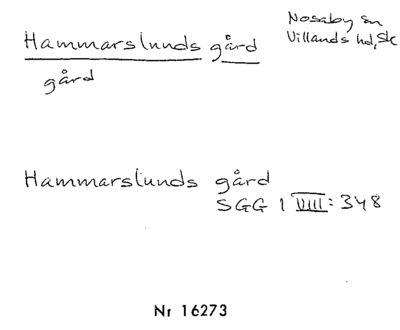 Hammarslunds gård
Nosaby sn
Villands hd, Sk
gård
Hammarslunds gård
SGG 1 VIII: 348
Nr 16273